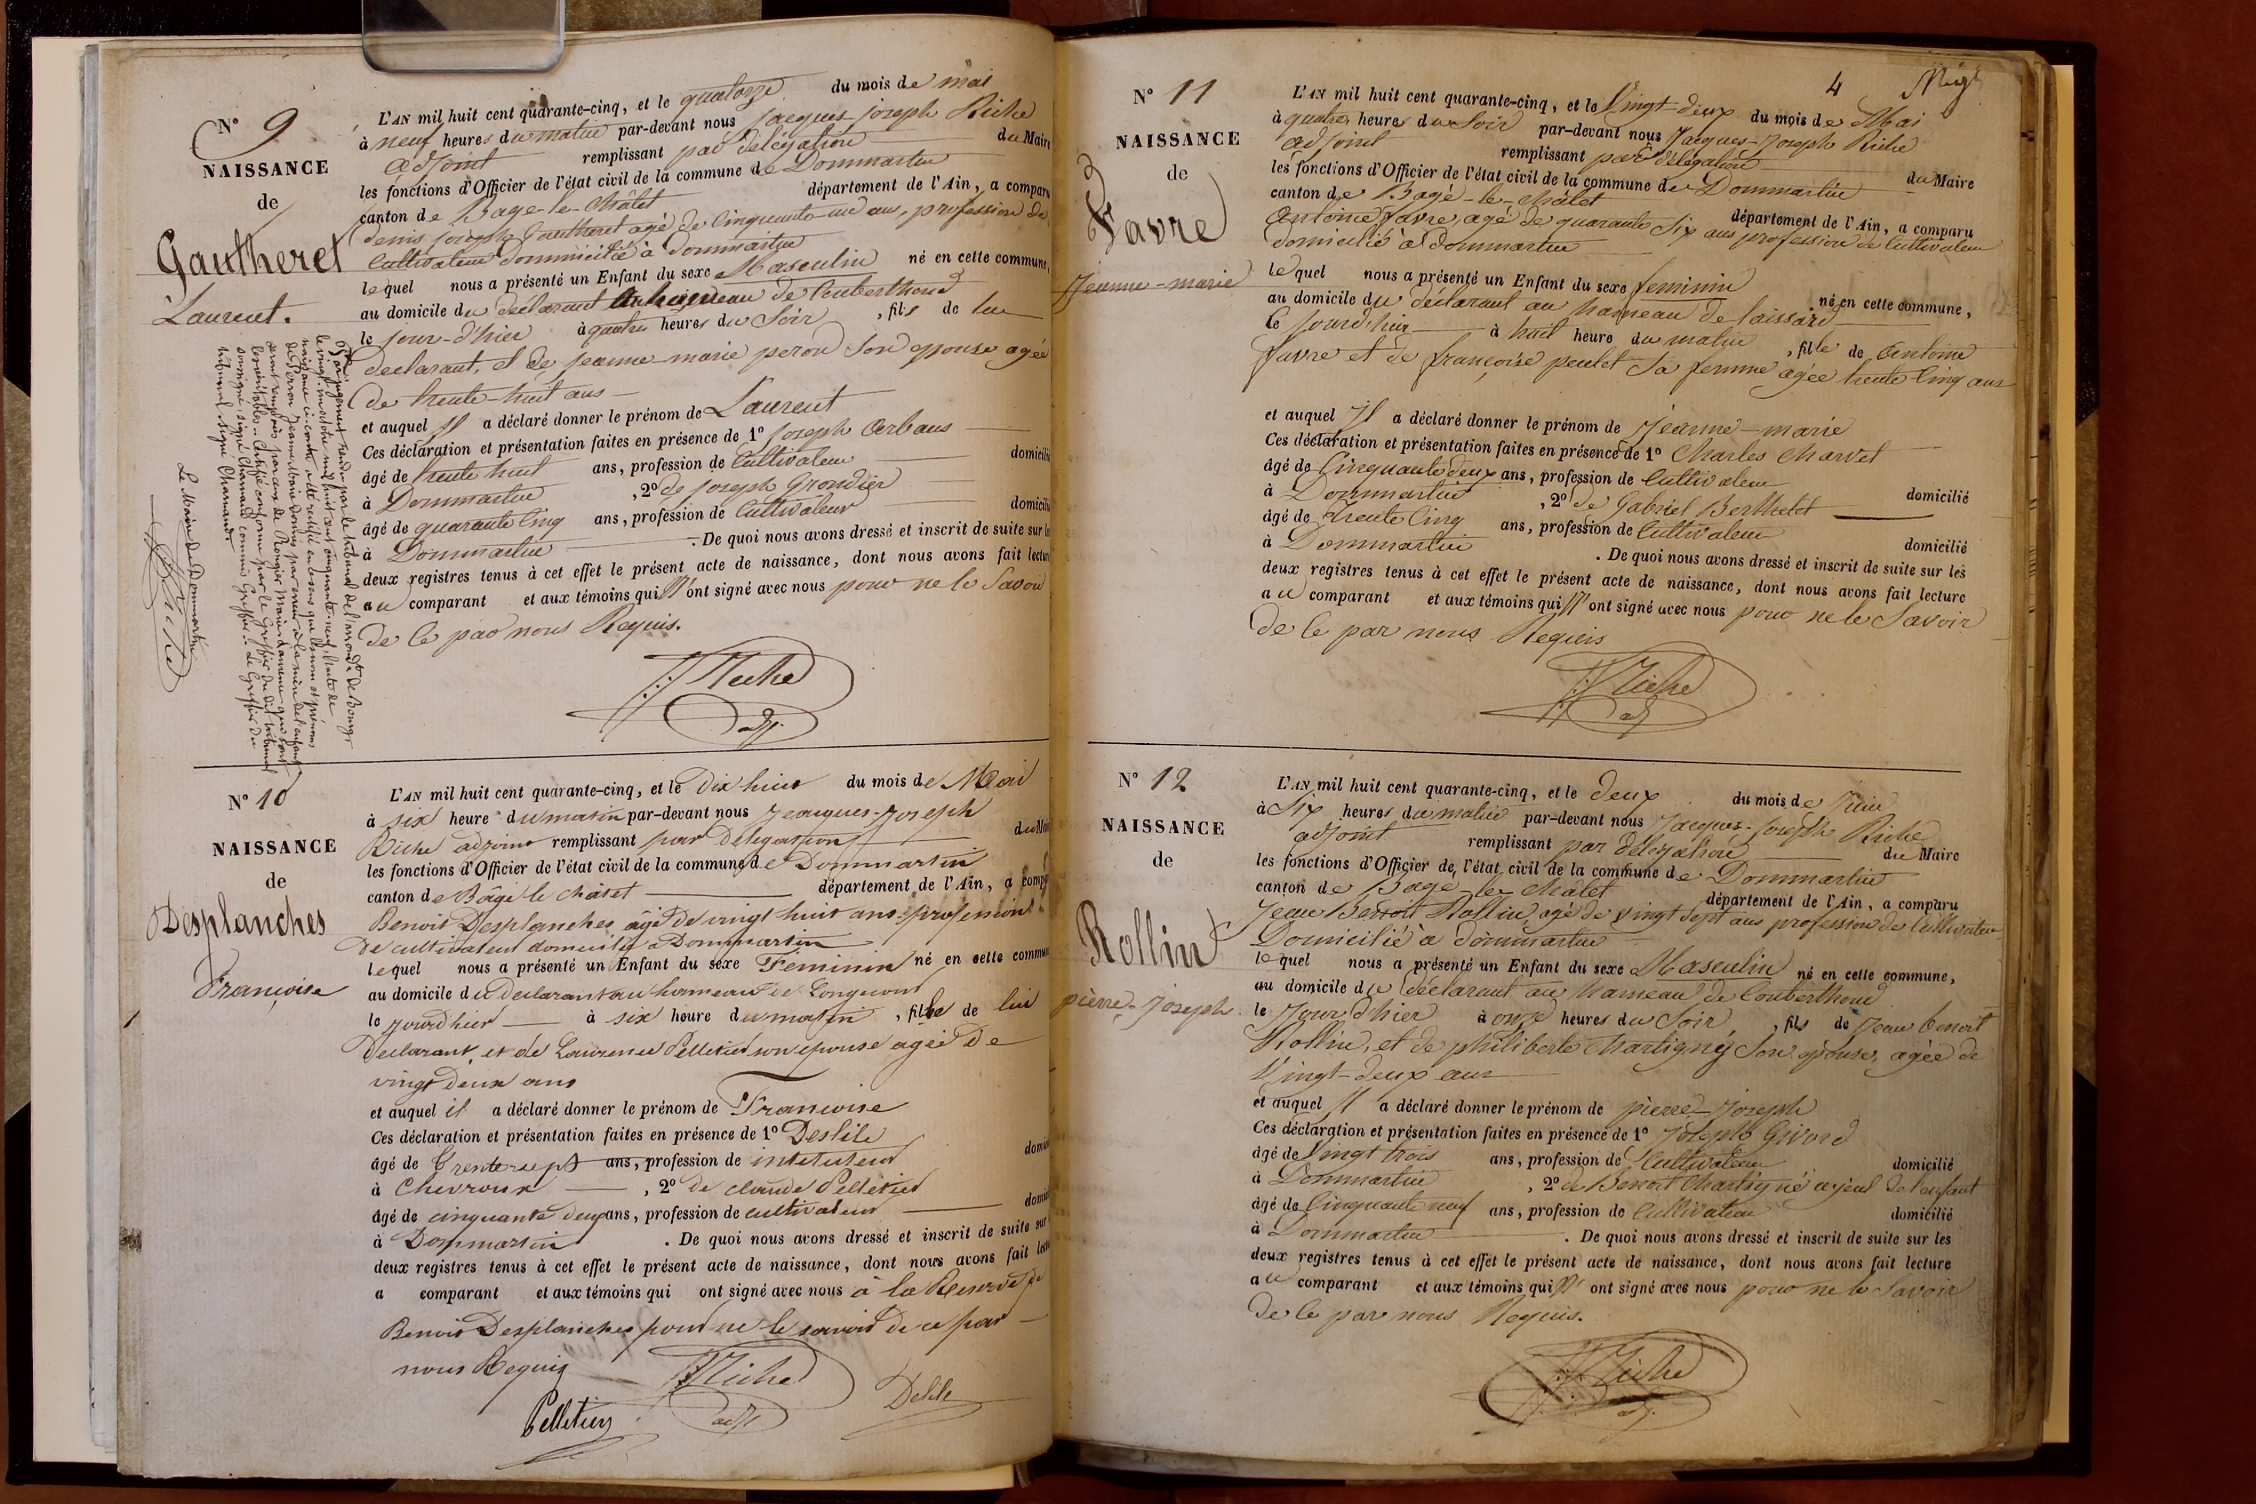 N° 9
NAISSANCE
de
Gautheret
Laurent.
L'AN mil huit cent quarante-cinq, et le quatorze du mois de mai
à neuf heures du matin par-devant nous jacques joseph Riche
adjoint remplissant par délégation du Maire
les fonctions d'Officier de l'état civil de la commune de Dommartin
canton de Bage-le-châtel département de l'Ain, a comparu
denis joseph Gautheret agé de Cinquante-un ans, profession de
Cultivateur dommicilié à dommartin
lequel nous a présenté un Enfant du sexe Masculin né en cette commune,
au domicile du déclarant au hameau de Couberthoud
le jour-d'hier à quatre heures du Soir, fils de lui
declarant, et de jeanne-marie peron Son epouse agée
de trente-huit ans
et auquel Il a déclaré donner le prénom de Laurent
Ces déclaration et présentation faites en présence de 1° joseph Cerbaus
âgé de trente huit ans, profession de Cultivateur domicilié
à Dommartin, 2° de joseph Grondier
âgé de quarante Cinq ans, profession de Cultivateur domicilié
à Dommartin. De quoi nous avons dressé et inscrit de suite sur les
deux registres tenus à cet effet le présent acte de naissance, dont nous avons fait lecture
au comparant et aux témoins qui N'ont signé avec nous pour ne le Savoir
de Ce par nous Requis.
JJ Riche
adj.
Par jugement rendu par le tribunal de l'arrondt. de Bourg
le vingt un octobre mil huit cent cinquante-neuf, l'acte de
naissance ci-contre a été rectifié en ce sens que les nom et prénoms
de Perron Jeanne Marie donnés par erreur à la mère de l'enfant
seront remplacés par ceux de Rongier Marie
Certifié conforme par le Greffier du dit tribunal
soussigné, signé Chamaud commis Greffier. Le Greffier du
tribunal signé Chamaud
Le Maire de Dommartin
Riche
N° 10
NAISSANCE
de
Desplanches
Françoise
L'AN mil huit cent quarante-cinq, et le Dix huit du mois de Mai
à six heure du matin par-devant nous Jeacques-Joseph
Riche adjoint remplissant par Délégation du Maire
les fonctions d'Officier de l'état civil de la commune de Dommartin
canton de Bâgé le châtel département de l'Ain, a comparu
Benoit Desplanches âgé de vingt huit ans profession
de cultivateur domicilié a Dommartin
Lequel nous a présenté un Enfant du sexe Féminin né en cette commune
au domicile du declarant au hameau de Longuont
le jourd hier à six heure du matin, fille de lui
Declarant, et de Laurence Pelletier son epouse agée De
vingt deux ans
et auquel il a déclaré donner le prénom de Francoise
Ces déclaration et présentation faites en présence de 1° Deslile
âgé de trente-sept ans, profession de intituteur domicilié
à Chevroux, 2° de claude Pelletier
âgé de cinquante deux ans, profession de cultivateur domicilié
à Dommartin. De quoi nous avons dressé et inscrit de suite sur
deux registres tenus à cet effet le présent acte de naissance, dont nous avons fait lecture
a comparant et aux témoins qui ont signé avec nous à la Reserve de
Benoit Desplanches pour ne le savoir de ce par
nous Requis
JJ Riche
adj
Pelletier
Delile
4
N° 11
NAISSANCE
de
Favre
Jeanne-marie
L'AN mil huit cent quarante-cinq, et le Vingt-deux du mois de Mai
à quatre heures du Soir par-devant nous Jacques-Joseph Riche
adjoint remplissant par délégation du Maire
les fonctions d'Officier de l'état civil de la commune de Dommartin
canton de Bagé-le-châtel département de l'Ain, a comparu
Antoine favre, agé de quarante Six ans profession de Cultivateur
domicilié à Dommartin
lequel nous a présenté un Enfant du sexe feminin né en cette commune,
au domicile du déclarant au hameau de laissard
le jourd'hui à huit heure du matin, fille de Antoine
favre et de françoise peulet Sa femme agée trente Cinq ans
et auquel Il a déclaré donner le prénom de Jeanne-marie
Ces déclaration et présentation faites en présence de 1° Charles Charvet
âgé de Cinquante deux ans, profession de Cultivateur domicilié
à Dommartin, 2° de Gabriel Berthelet
âgé de Trente Cinq ans, profession de Cultivateur domicilié
à Dommartin. De quoi nous avons dressé et inscrit de suite sur les
deux registres tenus à cet effet le présent acte de naissance, dont nous avons fait lecture
au comparant et aux témoins qui N'ont signé avec nous pour ne le Savoir
de Ce par nous Requis
JJ Riche
adj
N° 12
NAISSANCE
de
Rollin
pierre-Joseph
L'AN mil huit cent quarante-cinq, et le deux du mois de Juin
à Six heures du matin par-devant nous Jacques-Joseph Riche
adjoint remplissant par délégation du Maire
les fonctions d'Officier de l'état civil de la commune de Dommartin
canton de Bagé-le-châtel département de l'Ain, a comparu
Jean Benoit Rollin, agé de vingt Sept ans profession de Cultivateur
Domicilié à dommartin
lequel nous a présenté un Enfant du sexe Masculin né en cette commune,
au domicile du déclarant au hameau de Couberthoud
le Jour d'hier à onze heures du Soir, fils de Jean benoit
Rollin, et de philiberte Chartigny Son épouse, agée de
Vingt-deux ans
et auquel Il a déclaré donner le prénom de pierre-Joseph
Ces déclaration et présentation faites en présence de 1° Joseph Givord
âgé de Vingt trois ans, profession de Cultivateur domicilié
à Dommartin, 2° de Benoit Chartigné ayeul de l'enfant
âgé de Cinquante neuf ans, profession de Cultivateur domicilié
à Dommartin. De quoi nous avons dressé et inscrit de suite sur les
deux registres tenus à cet effet le présent acte de naissance, dont nous avons fait lecture
au comparant et aux témoins qui N'ont signé avec nous pour ne le Savoir
de Ce par nous Requis.
JJ Riche
adj.